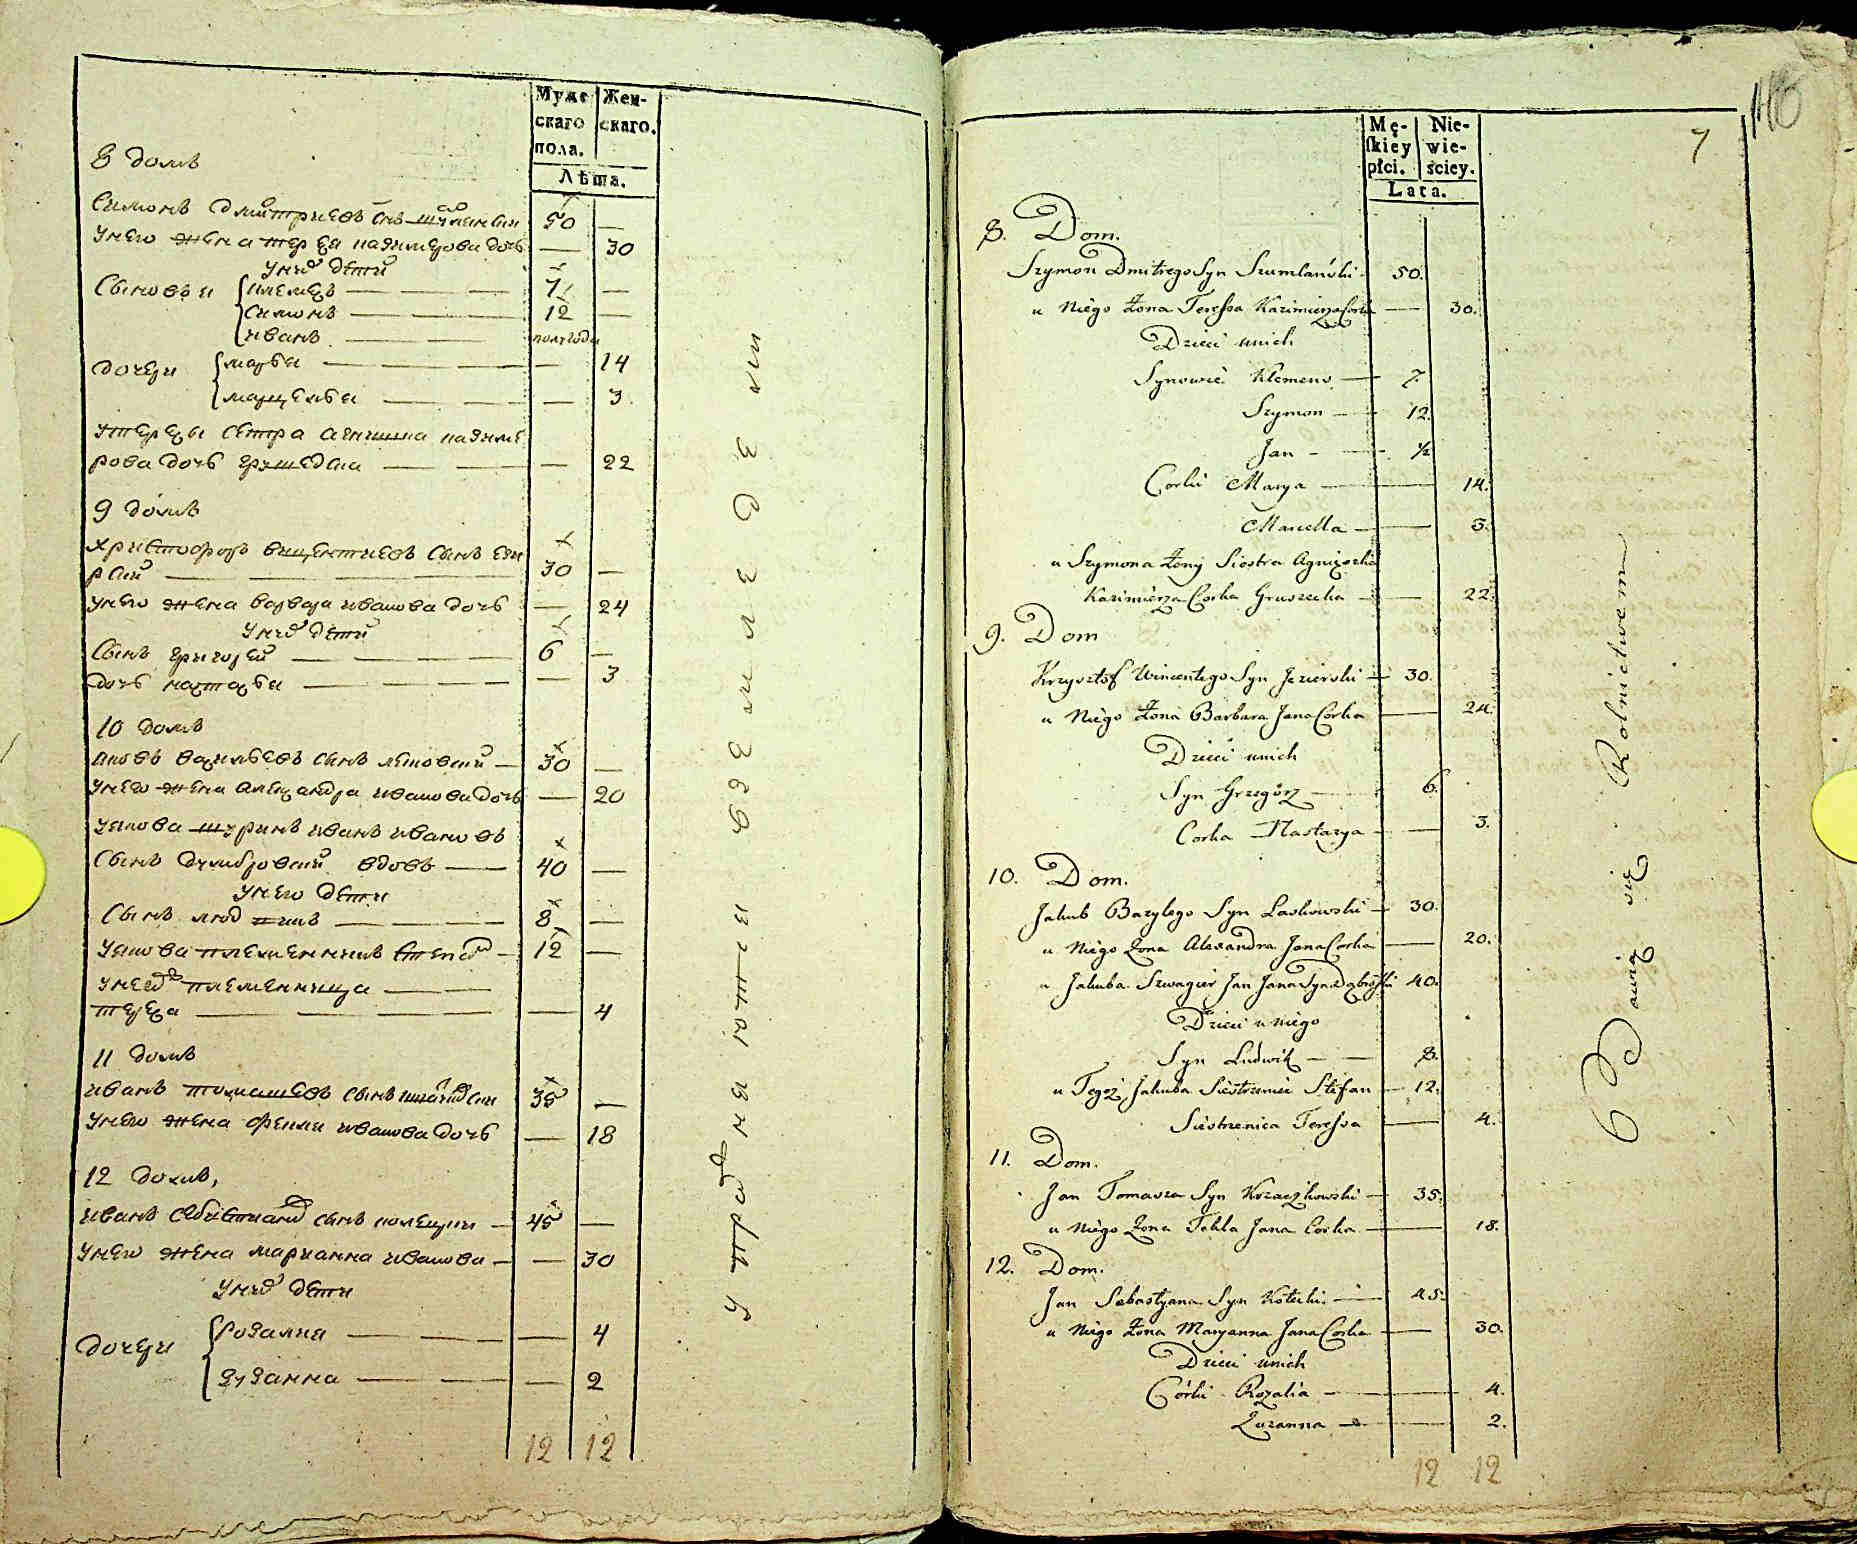 Муже
скаго
пола.
Жен-
скаго.
Лѣта.
8 домъ
Симонъ Дмитриевъ снъ 50 —
у него жена Тереса Казимерова дочь — 30
у нихъ дети
Сыновья Клемецъ — 7 —
Симонъ — 12 —
Иванъ — полгода
дочери Марья — 14
Марцелья — 3
у Терезы сестра Агнишка Казиме
рова дочь Грушецка — 22
9 домъ
Христофоръ Вицентиевъ сынъ Ези
рски — 30 —
у него жена Варвара Иванова дочь — 24
у нихъ дети
Сынъ Григорей — 6 —
дочь Настазья — 3
10 домъ
Яковъ Васильевъ сынъ 30 —
у него жена Александра Иванова дочь — 20
у Якова шуринъ Иванъ Ивановъ
сынъ Думбровский вдовъ — 40 —
у него дети
Сынъ Людвикъ — 8 —
у Якова племенникъ Стефанъ — 12 —
у него племенница —
Тереза — 4
11 домъ
Иванъ Томашевъ сынъ 35 —
у него жена Фекла Иванова дочь — 18
12 домъ,
Иванъ Себастиановъ сынъ 45 —
у него жена Марианна Иванова — 30
у нихъ дети
дочери Розалия — 4
Зузанна — 2
12 12
Mę-
skiey
płci.
Nie-
wie-
ściey.
Lata.
7
118
8. Dom.
Szymon Dmitrego Syn Szumlański 50.
u Niego Żona Teressa Kazimierza Corka — 30.
Dzieci u nich
Synowie Klemens — 7.
Szymon — 12.
Jan — ½
Corki Marya — 14.
Marcella — 3.
u Szymona Żony Siostra Agnieszka
Kazimierza Corka Gruszecka — 22.
9. Dom
Krzysztof Wincentego Syn Jezierski — 30.
u Niego Żona Barbara Jana Corka — 24.
Dzieci u nich
Syn Grzegórz — 6.
Corka Nastazya — 3.
10. Dom.
Jakub Bazylego Syn Laskowski — 30.
u Niego Żona Alexandra Jana Corka — 20.
u Jakuba Szwagier Jan Jana Syn Dąbrowski 40.
Dzieci u niego
Syn Ludwik — 8.
u Tegoż Jakuba Siestrzeniec Stefan — 12.
Siestrzenica Teressa — 4.
11. Dom.
Jan Tomasza Syn Krzaczkowski — 35.
u Niego Żona Tekla Jana Corka — 18.
12. Dom.
Jan Sebastyana Syn Kotecki — 45.
u Niego Żona Maryanna Jana Corka — 30.
Dzieci u nich
Córki Rozalia — 4.
Zuzanna — 2.
12 12
Bawią się Rolnictwem